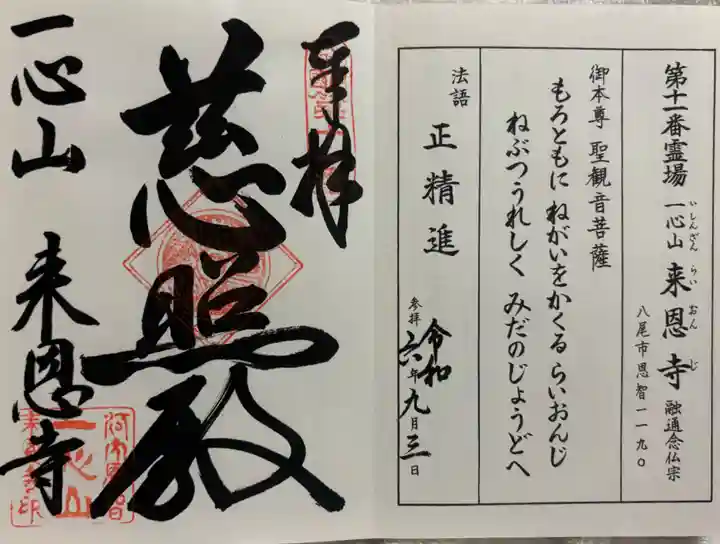 第十一番霊場 一心山 来恩寺 融通念仏宗
いしんざん らい おん じ
八尾市恩智一一九〇
御本尊 聖観音菩薩
もろともに ねがいをかくる らいおんじ
ねぶつうれしく みだのじょうどへ
法語 正精進
参拝 令和六年九月三日
奉拝
慈照殿
一心山 来恩寺
河内恩智
一心山
来恩寺印